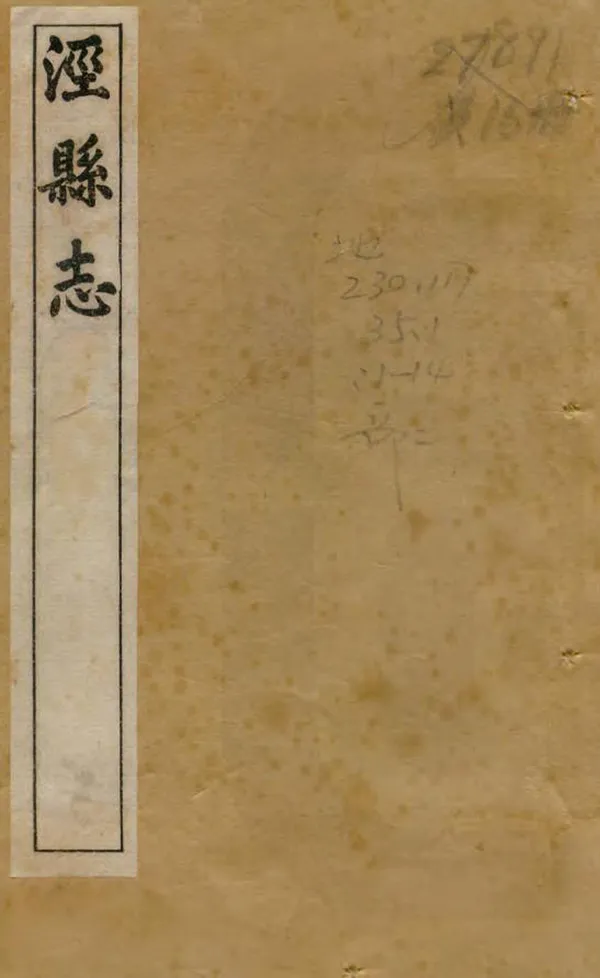 涇縣志
27891
共15冊
地
230.117
35.1
:1-14
部二